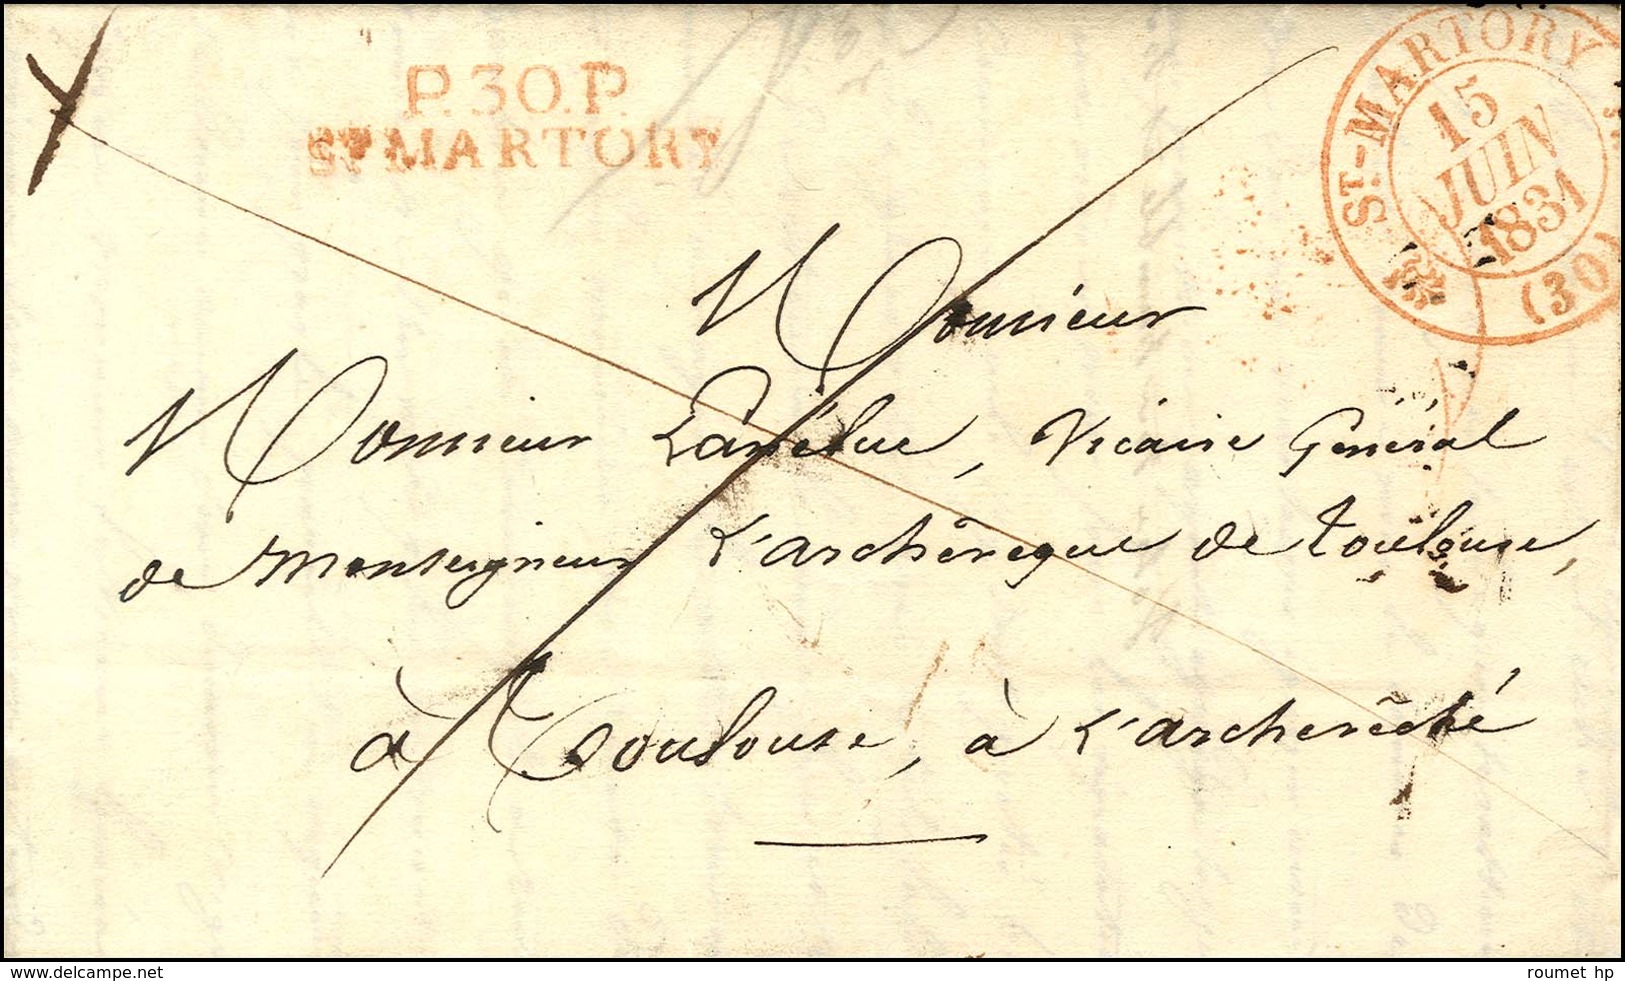 P.30.P.
ST MARTORY
ST.-MARTORY
15
JUIN
1831
(30)
Monsieur
Monsieur , Vicaire Général
de Monseigneur L'archevêque de Toulouse,
à Toulouse, à L'archevêché
www.delcampe.net
roumet hp